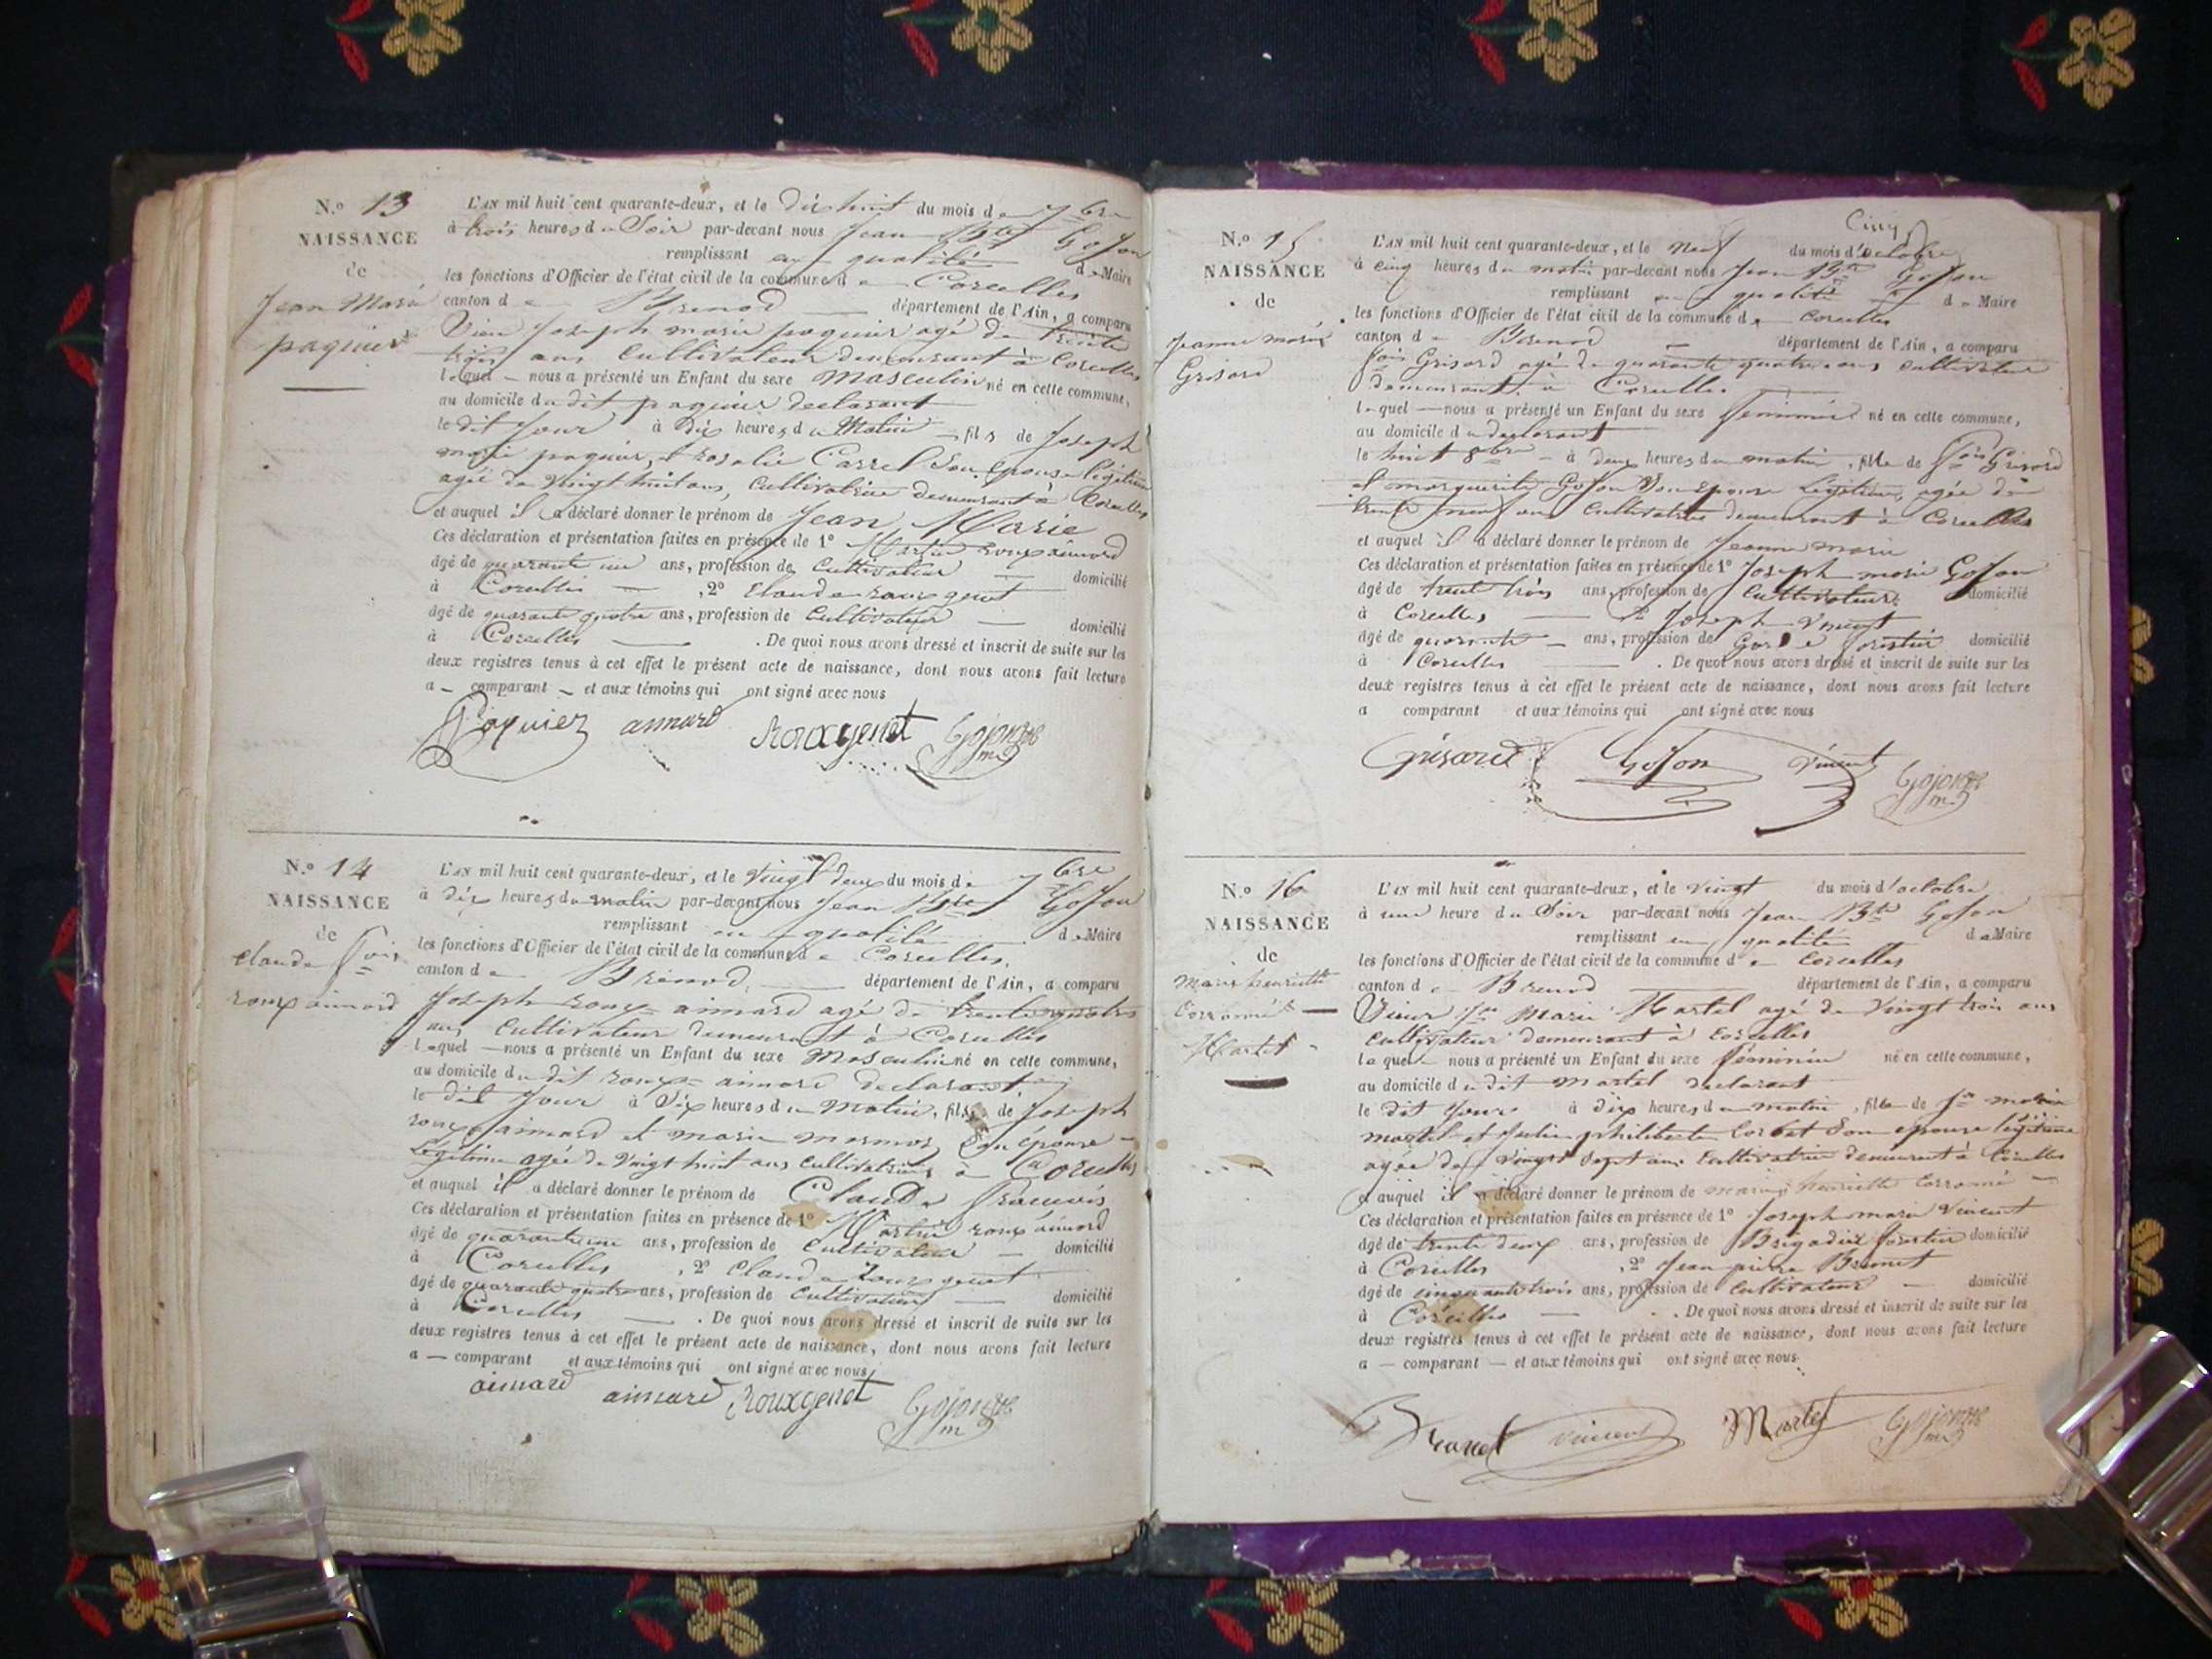 N.º 13
NAISSANCE
de
Jean Marie
paquier
L'AN mil huit cent quarante-deux, et le dix huit du mois de 7bre
à trois heures du Soir par-devant nous Jean Bte Gojon
remplissant en qualité de Maire
les fonctions d'Officier de l'état civil de la commune de Corcelles
canton de Brenod département de l'Ain, a comparu
Sieur Joseph marie paquier agé de trente
trois ans Cultivateur demeurant à Corcelles
lequel nous a présenté un Enfant du sexe Masculin né en cette commune,
au domicile du dit paquier declarant
le dit Jour à dix heures du Matin fils de Joseph
marie paquier, et rosalie Carrel Son épouse légitime
agée de vingt huit ans, Cultivatrice demeurant à Corcelles
et auquel il a déclaré donner le prénom de Jean Marie
Ces déclaration et présentation faites en présence de 1º Martin roux aimard
âgé de quarante un ans, profession de Cultivateur domicilié
à Corcelles , 2º Claude roux genet
âgé de quarante quatre ans, profession de Cultivateur domicilié
à Corcelles . De quoi nous avons dressé et inscrit de suite sur les
deux registres tenus à cet effet le présent acte de naissance, dont nous avons fait lecture
a comparant et aux témoins qui ont signé avec nous
Paquier aimard Rouxgenet Gojon
N.º 14
NAISSANCE
de
Claude fois
roux aimard
L'AN mil huit cent quarante-deux, et le Vingt deux du mois de 7bre
à dix heures du matin par-devant nous Jean Bte Gojon
remplissant en qualité de Maire
les fonctions d'Officier de l'état civil de la commune de Corcelles
canton de Brénod département de l'Ain, a comparu
Joseph roux aimard agé de trente quatre
ans Cultivateur demeurant à Corcelles
lequel nous a présenté un Enfant du sexe Masculin né en cette commune,
au domicile du dit roux aimard declarant
le dit Jour à Six heures du Matin, fils de Joseph
roux aimard et marie mermoz Son épouse
Légitime agée de Vingt huit ans Cultivatrice à Corcelles
et auquel il a déclaré donner le prénom de Claude François
Ces déclaration et présentation faites en présence de 1º Martin roux aimard
âgé de quarante un ans, profession de Cultivateur domicilié
à Corcelles , 2º Claude roux genet
âgé de quarante quatre ans, profession de Cultivateur domicilié
à Corcelles . De quoi nous avons dressé et inscrit de suite sur les
deux registres tenus à cet effet le présent acte de naissance, dont nous avons fait lecture
a comparant et aux témoins qui ont signé avec nous
aimard aimard Rouxgenet Gojon
Cinq
N.º 15
NAISSANCE
de
Jeanne marie
Grisard
L'AN mil huit cent quarante-deux, et le Neuf du mois d'octobre
à cinq heures du matin par-devant nous Jean Bte Gojon
remplissant en qualité de Maire
les fonctions d'Officier de l'état civil de la commune de Corcelles
canton de Brenod département de l'Ain, a comparu
fois Grisard agé de quarante quatre ans cultivateur
demeurant à Corcelles
lequel nous a présenté un Enfant du sexe feminin né en cette commune,
au domicile du declarant
le huit 8bre à deux heures du matin, fille de fois Grisard
et marguerite Gojon Son epouse Légitime agée de
trente neuf ans Cultivatrice demeurant à Corcelles
et auquel il a déclaré donner le prénom de Jeanne marie
Ces déclaration et présentation faites en présence de 1º Joseph marie Gojon
âgé de trente trois ans, profession de Cultivateur domicilié
à Corcelles 2º Joseph Vincent
âgé de quarante ans, profession de Garde forestier domicilié
à Corcelles . De quoi nous avons dressé et inscrit de suite sur les
deux registres tenus à cet effet le présent acte de naissance, dont nous avons fait lecture
a comparant et aux témoins qui ont signé avec nous
Grisard Gojon Vincent Gojon
N.º 16
NAISSANCE
de
Marie henriette
Martel
L'AN mil huit cent quarante-deux, et le vingt du mois d'octobre
à une heure du Soir par-devant nous Jean Bte Gojon
remplissant en qualité de Maire
les fonctions d'Officier de l'état civil de la commune de Corcelles
canton de Brenod département de l'Ain, a comparu
Sieur Marie Martel agé de Vingt trois ans
Cultivateur demeurant à Corcelles
lequel nous a présenté un Enfant du sexe féminin né en cette commune,
au domicile du dit Martel declarant
le dit Jour à dix heures du matin, fille de marie
martel et philiberte Corbet Son epouse légitime
agée de Vingt Sept ans Cultivatrice demeurant à Corcelles
et auquel il a déclaré donner le prénom de marie henriette
Ces déclaration et présentation faites en présence de 1º Joseph marie Vincent
âgé de trente deux ans, profession de Brigadier forestier domicilié
à Corcelles , 2º Jean pierre
âgé de cinquante trois ans, profession de Cultivateur domicilié
à Corcelles . De quoi nous avons dressé et inscrit de suite sur les
deux registres tenus à cet effet le présent acte de naissance, dont nous avons fait lecture
a comparant et aux témoins qui ont signé avec nous
Vincent Martel Gojon